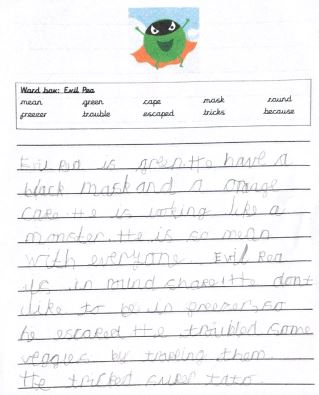 Word box: Evil Pea
mean green cape mask round
freezer trouble escaped tricks because
Evil Pea is green. He have a
black mask and a orange
cape. He is looking like a
monster. He is so mean
with everyone. Evil Pea
is in round shape. He dont
like to be in freezer so
he escaped. He troubled some
veggies by them.
He tricked super tato.